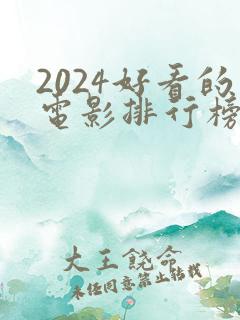 2024好看的
电影排行榜
大王饶命
未经同意禁止转载